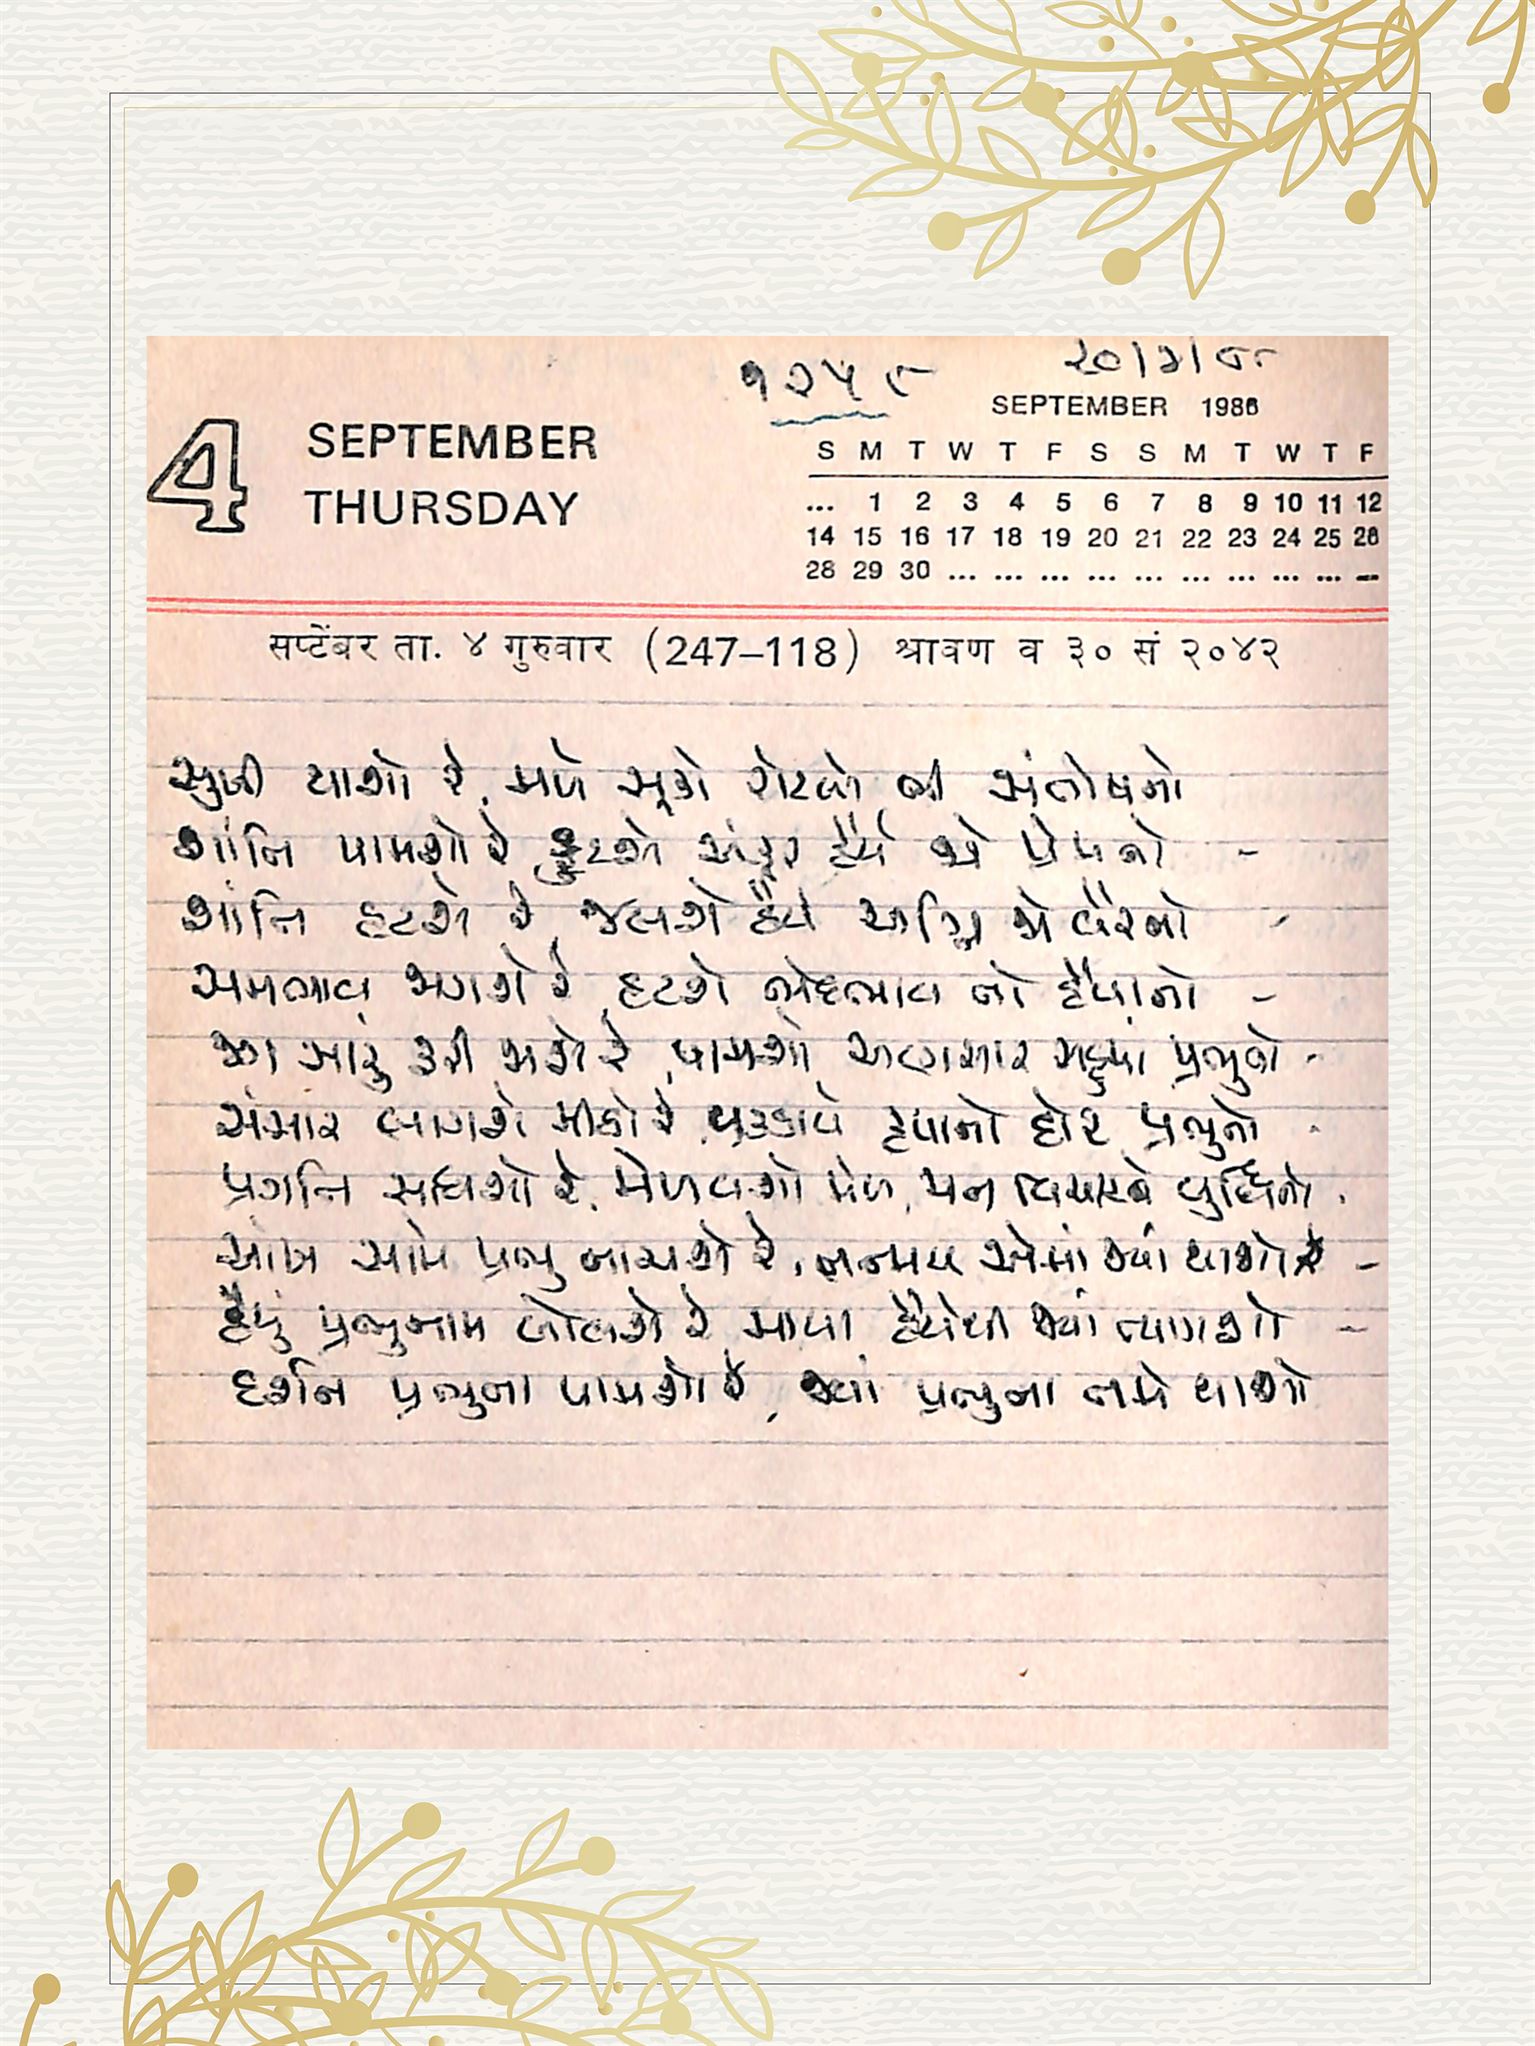 ૧૨૫૯
૨૦/૪/૮૮
4 SEPTEMBER
THURSDAY
SEPTEMBER 1986
S M T W T F S S M T W T F
... 1 2 3 4 5 6 7 8 9 10 11 12
14 15 16 17 18 19 20 21 22 23 24 25 26
28 29 30 ... ... ... ... ... ... ... ... ... ...
सप्टेंबर ता. ४ गुरुवार (247–118) श्रावण व ३० सं २०४२
સુખી થાશો રે, મળે સૂકો રોટલો બી સંતોષનો
શાંતિ પામશો રે ફુટશે અંકુર હૈયે જો પ્રેમનો -
શાંતિ હટશે રે, જલશે હૈયે અગ્નિ જો વૈરનો -
સમભાવ જાગશે રે, હટશે ભેદભાવ જો હૈયાનો -
જગ સારું મળશે રે, પામશો અણસાર પ્રભુનો -
સંસાર લાગશે મીઠો રે, હૈયાનો દોર પ્રભુનો -
પ્રગતિ સાધશો રે, મેળવશો મેળ, મન વિચારને બુદ્ધિનો -
આંખ સામે પ્રભુ નાચશે રે, તન્મય એમાં જ્યાં થાશો રે -
હૈયું પ્રભુનામ બોલશે રે માયા હૈયેથી જ્યાં ત્યાગશો -
દર્શન પ્રભુના પામશો રે, જ્યાં પ્રભુના તમે થાશો